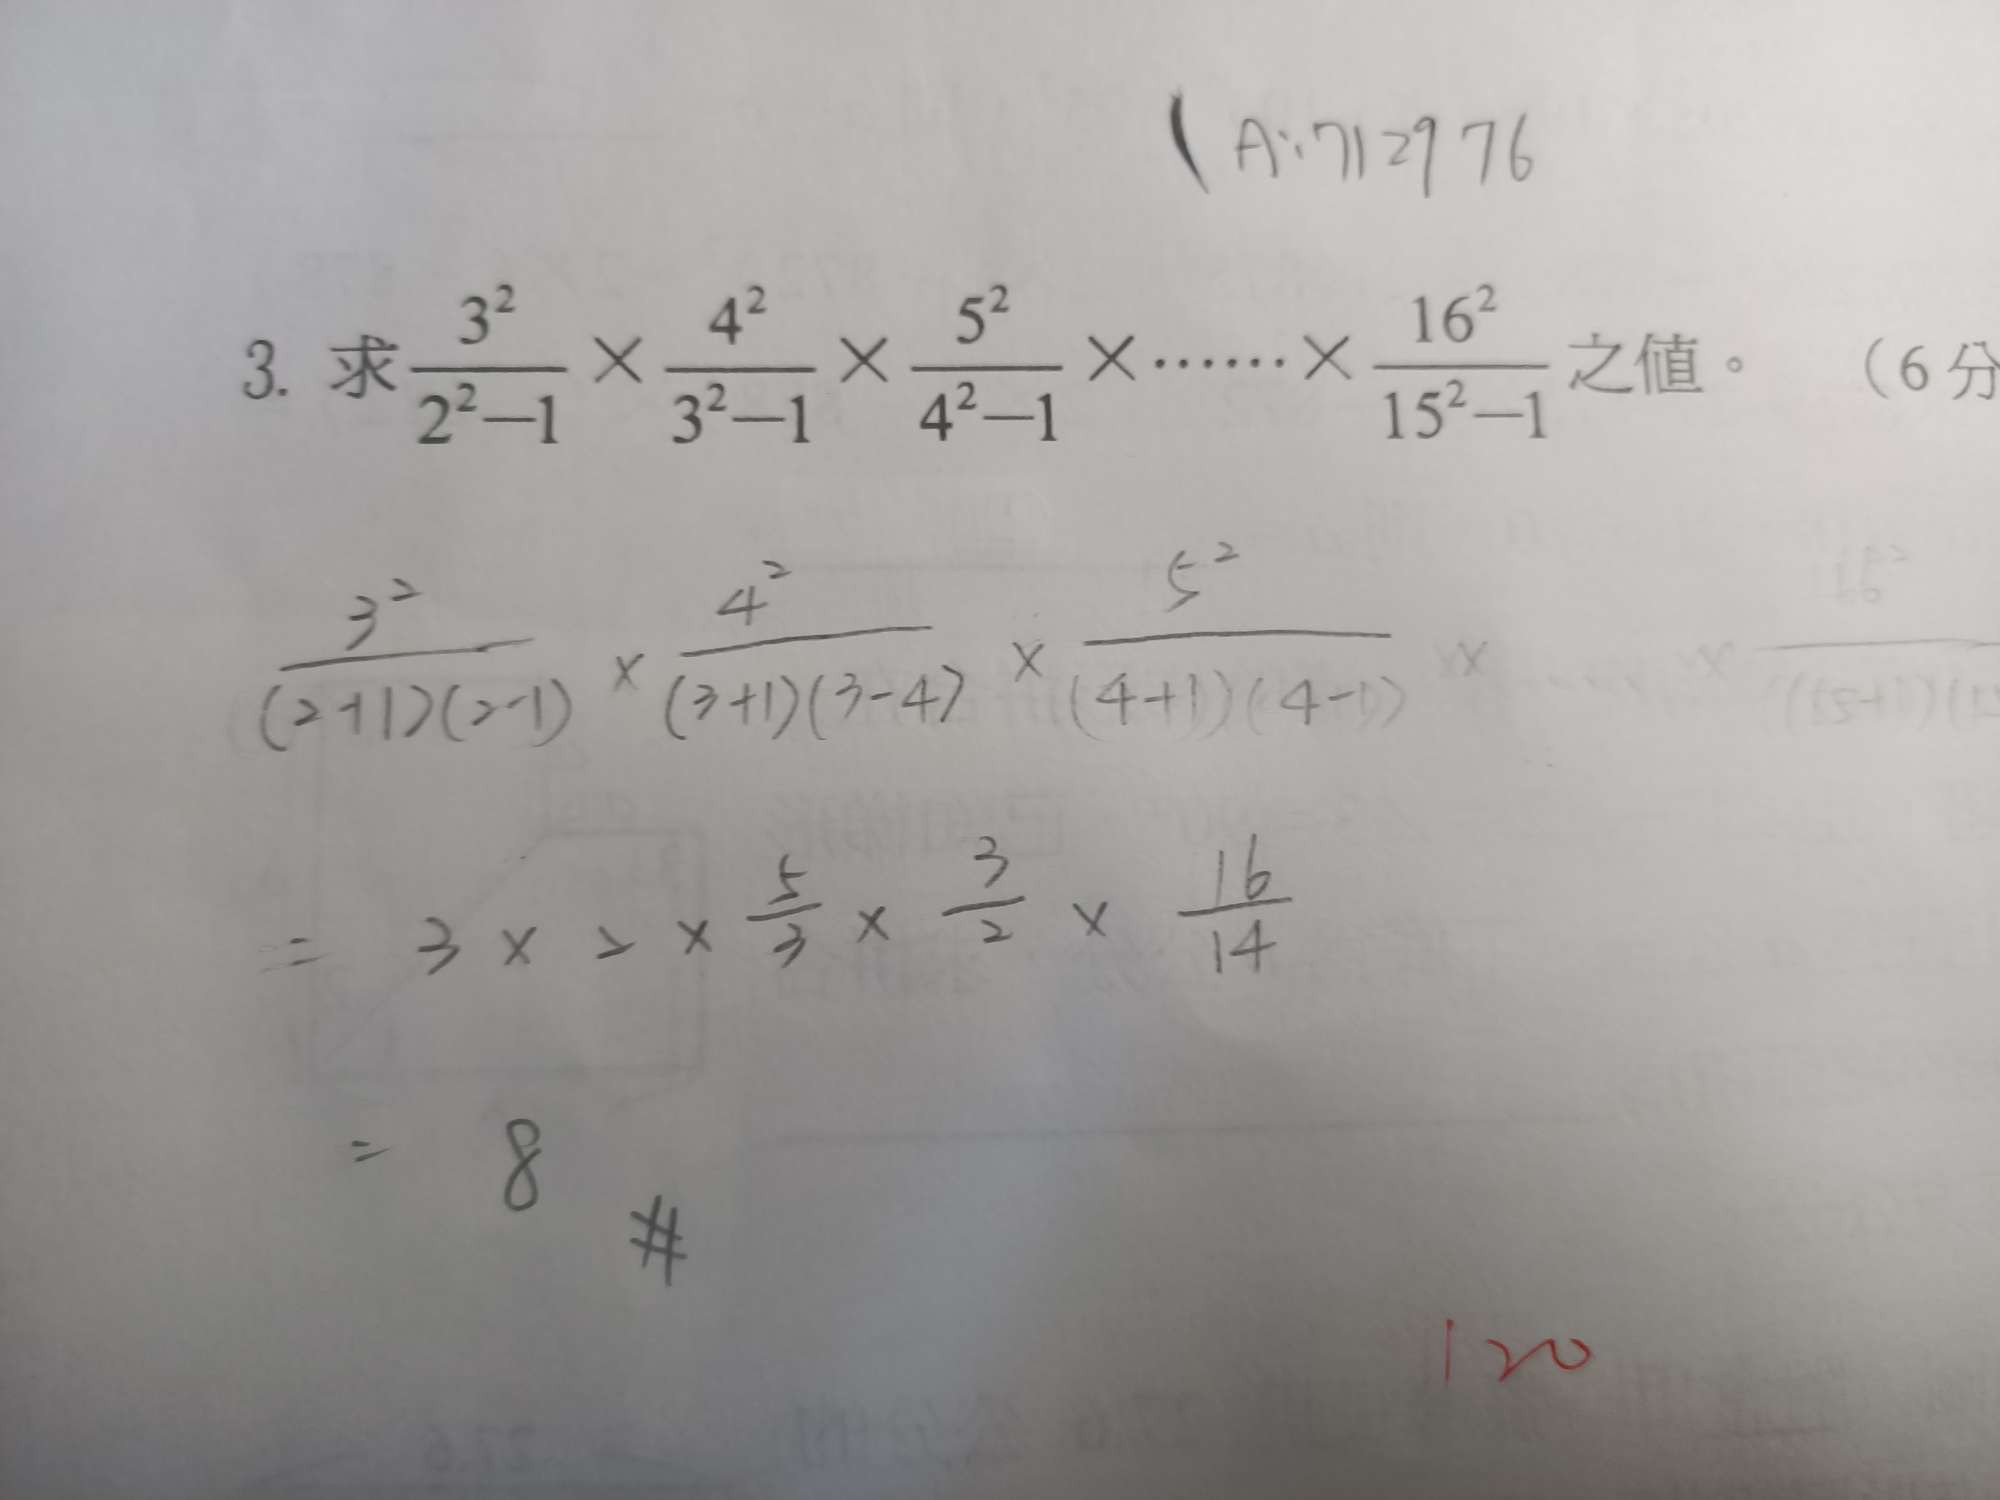 (A:712976
3. 求 3²/(2²−1) × 4²/(3²−1) × 5²/(4²−1) × …… × 16²/(15²−1) 之值。 (6分
3²/((2+1)(2-1)) × 4²/((3+1)(3-4)) × 5²/((4+1)(4-1))
= 3 × 2 × 5/3 × 3/2 × 16/14
= 8 #
120